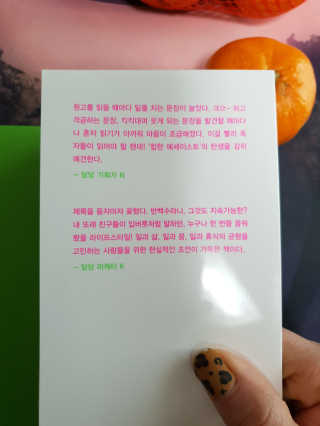 원고를 읽을 때마다 밑줄 치는 문장이 늘었다. 크으~ 하고
격공하는 문장, 킥킥대며 웃게 되는 문장을 발견할 때마다
나 혼자 읽기가 아까워 마음이 조급해졌다. 이걸 빨리 독
자들이 읽어야 할 텐데! '힙한 에세이스트'의 탄생을 감히
예견한다.
- 담당 기획자 H
제목을 듣자마자 꽂혔다. 반백수라니, 그것도 지속가능한?
내 또래 친구들이 입버릇처럼 말하던, 누구나 한 번쯤 꿈꿔
봤을 라이프스타일! 일과 삶, 일과 꿈, 일과 휴식의 균형을
고민하는 사람들을 위한 현실적인 조언이 가득한 책이다.
- 담당 마케터 K